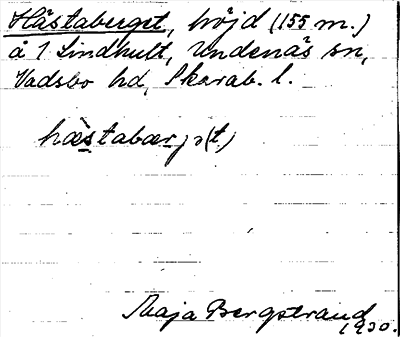 Hästaberget, höjd (155 m.)
å 1 Lindhult, Undenäs sn,
Vadsbo hd, Skarab. l.
hæ̀stabærjɔ(t)
Maja Bergstrand
1930.